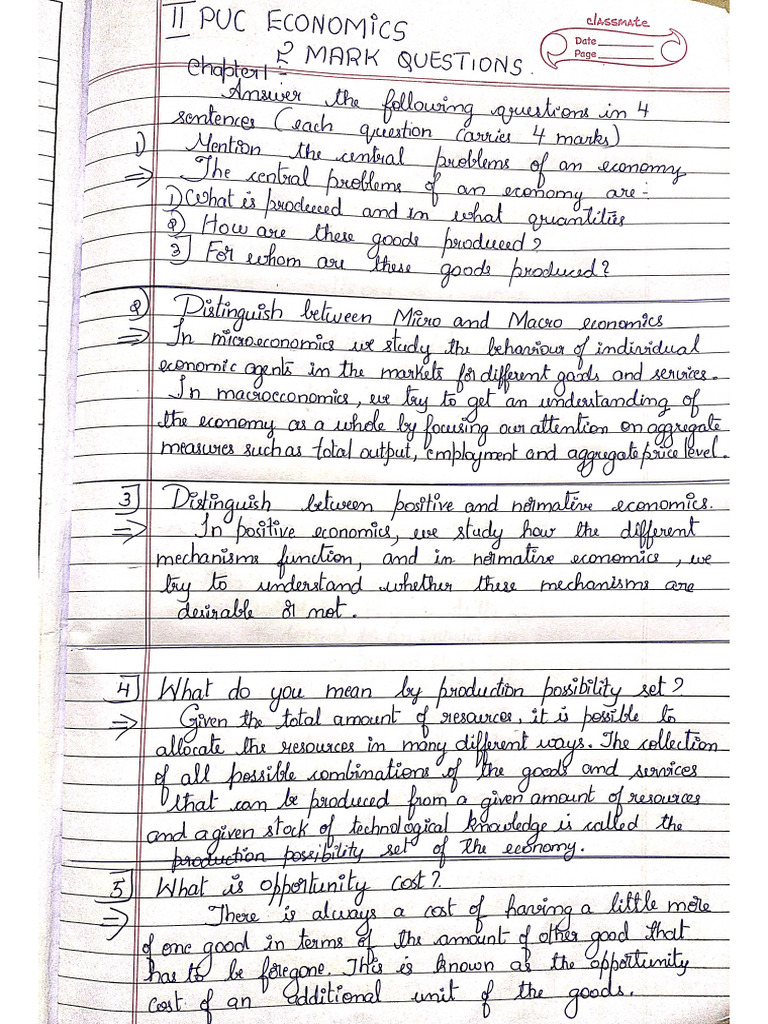 II PUC ECONOMICS
classmate
Date
Page
2 MARK QUESTIONS.
Chapter 1 :-
Answer the following questions in 4
sentences (each question carries 4 marks)
1) Mention the central problems of an economy
⇒ The central problems of an economy are:-
1) What is produced and in what quantities
2) How are these goods produced?
3] For whom are these goods produced?
2) Distinguish between Micro and Macro economics
⇒ In microeconomics we study the behaviour of individual
economic agents in the markets for different goods and services.
In macroeconomics, we try to get an understanding of
the economy as a whole by focusing our attention on aggregate
measures such as total output, employment and aggregate price level.
3] Distinguish between positive and normative economics.
⇒ In positive economics, we study how the different
mechanisms function, and in normative economics, we
try to understand whether these mechanisms are
desirable or not.
4] What do you mean by production possibility set?
⇒ Given the total amount of resources, it is possible to
allocate the resources in many different ways. The collection
of all possible combinations of the goods and services
that can be produced from a given amount of resources
and a given stock of technological knowledge is called the
production possibility set of the economy.
5] What is opportunity cost?
⇒ There is always a cost of having a little more
of one good in terms of the amount of other good that
has to be foregone. This is known as the opportunity
cost of an additional unit of the goods.